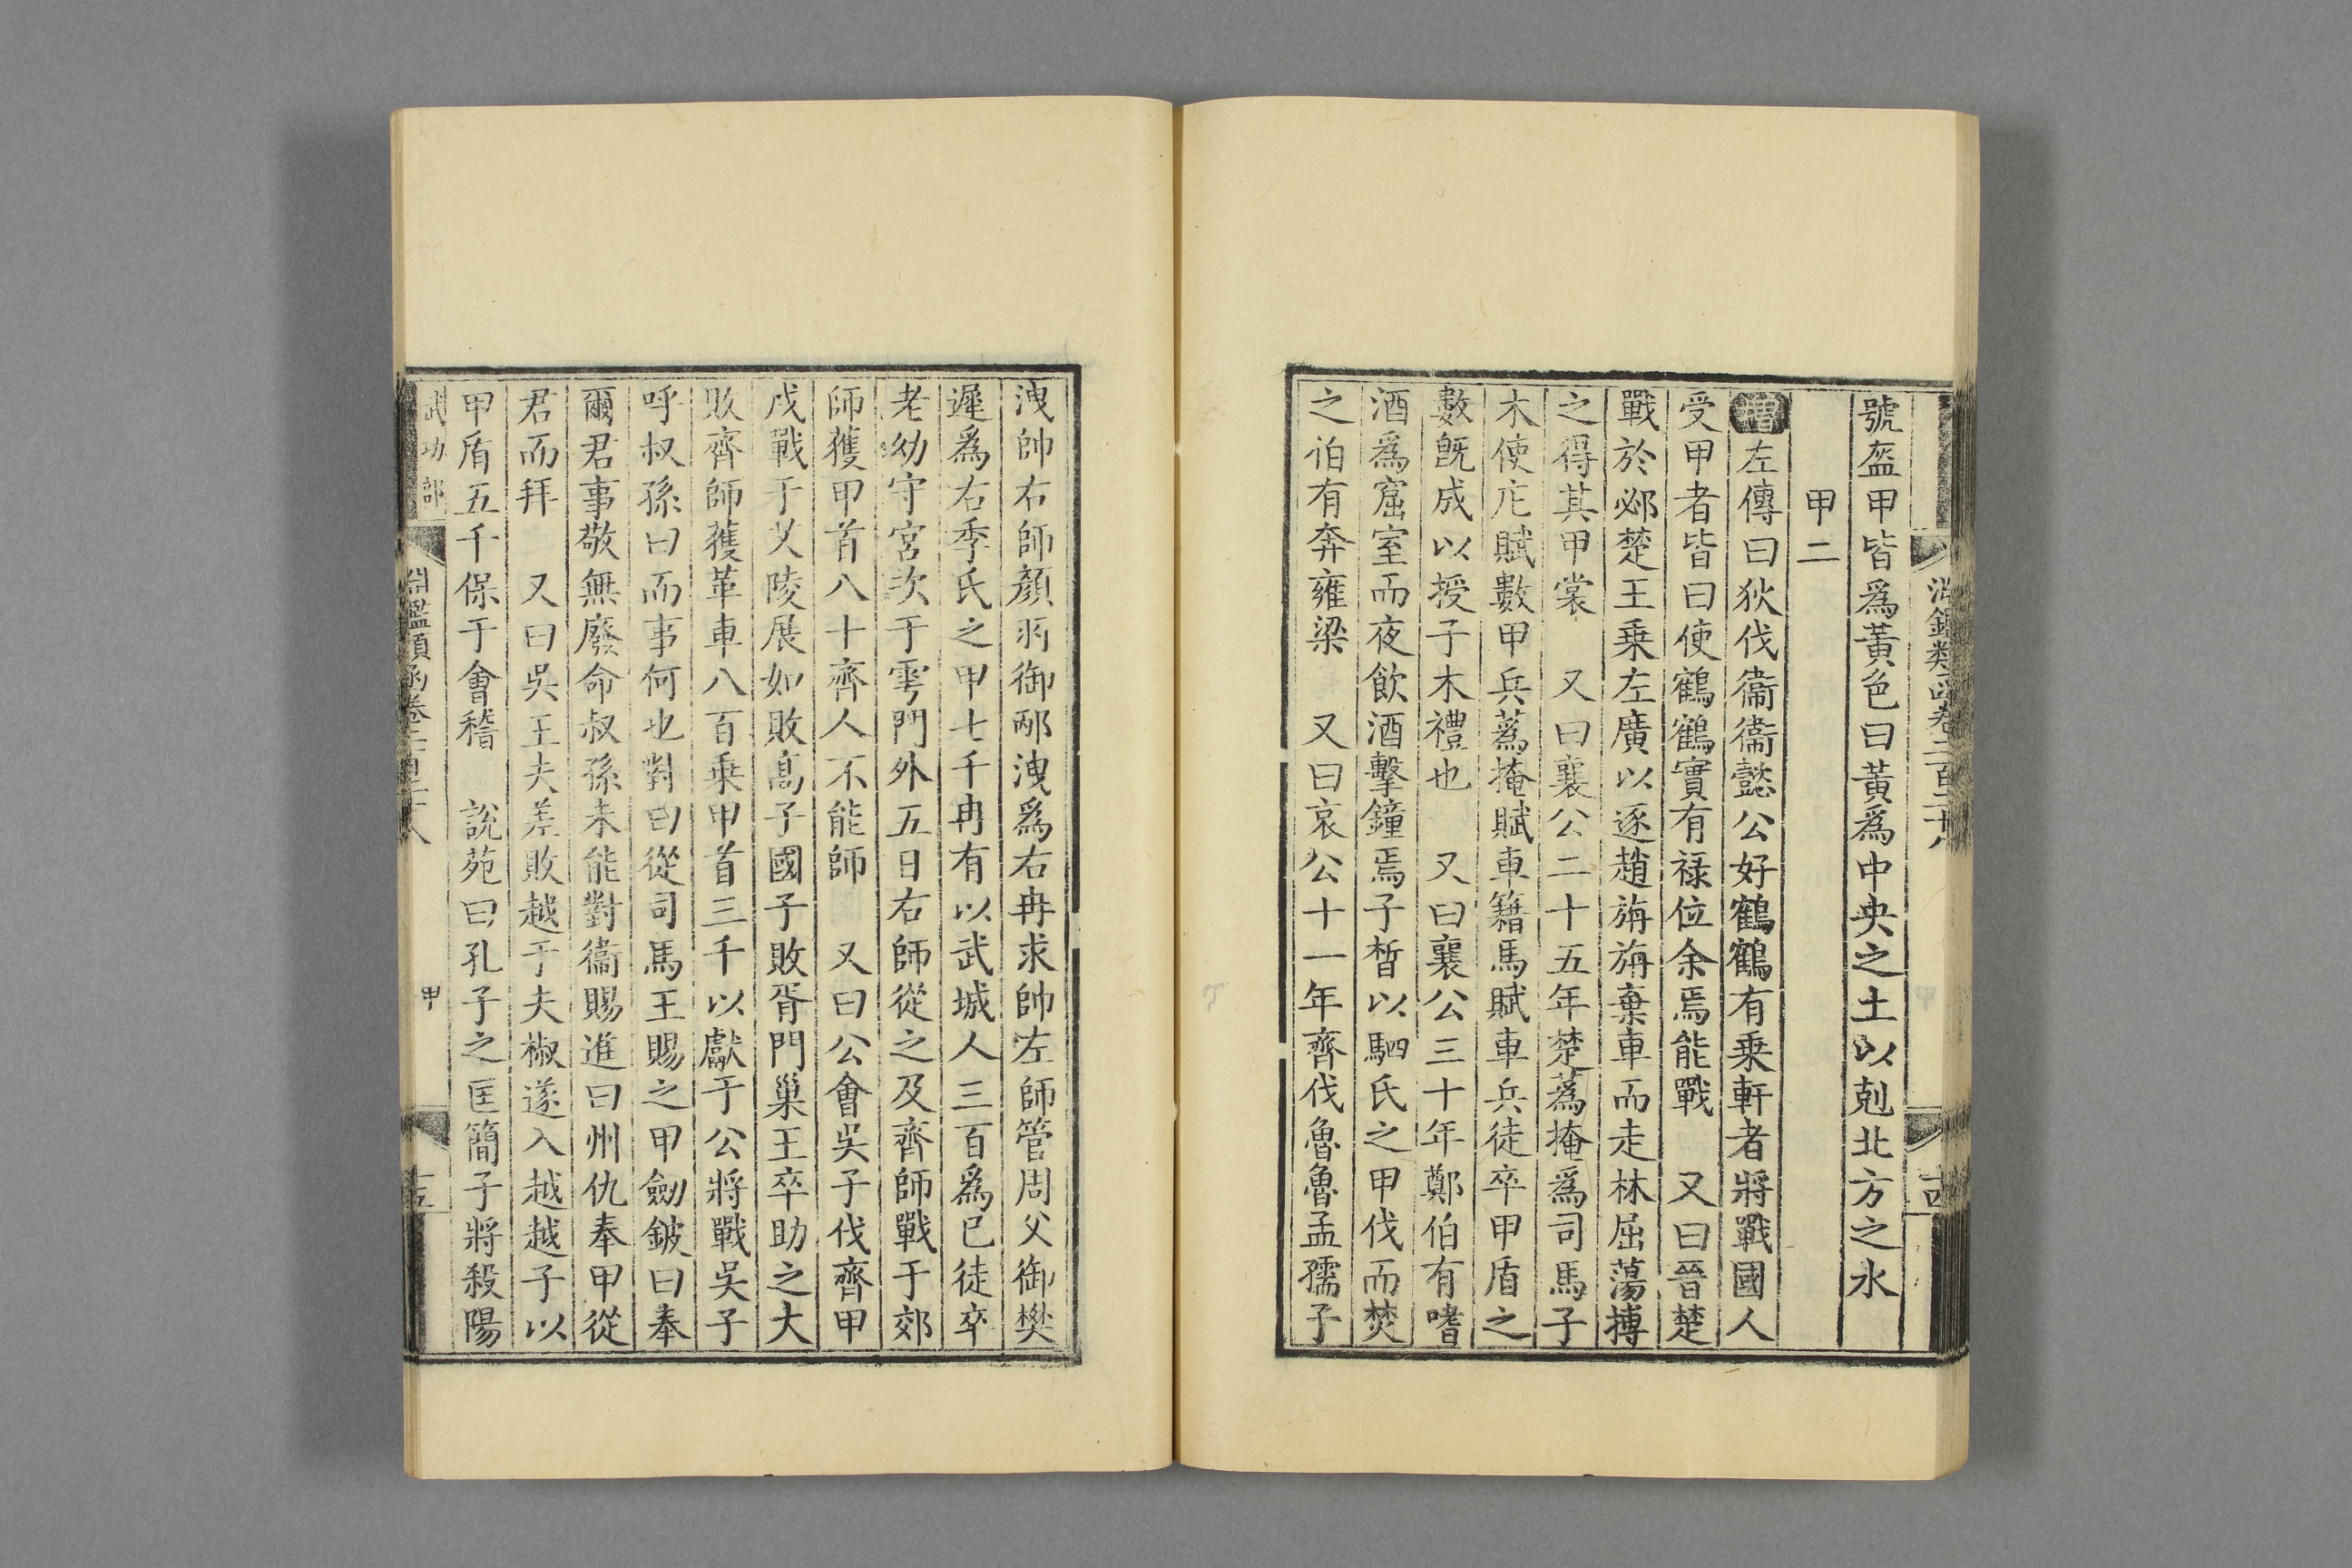 淵鑑類函卷二百二十八
十四
號盔甲皆爲黃色曰黃爲中央之土以剋北方之水
甲二
增左傳曰狄伐衞衞懿公好鶴鶴有乗軒者將戰國人
受甲者皆曰使鶴鶴實有禄位余焉能戰　又曰晉楚
戰於邲楚王乗左廣以逐趙旃旃棄車而走林屈蕩搏
之得其甲裳　又曰襄公二十五年楚蒍掩爲司馬子
木使庀賦數甲兵蒍掩賦車籍馬賦車兵徒卒甲盾之
數旣成以授子木禮也　又曰襄公三十年鄭伯有嗜
酒爲窟室而夜飲酒擊鐘焉子晳以駟氏之甲伐而焚
之伯有奔雍梁　又曰哀公十一年齊伐魯魯孟孺子
洩帥右師顏羽御邴洩爲右冉求帥左師管周父御樊
遲爲右季氏之甲七千冉有以武城人三百爲已徒卒
老幼守宮次于雩門外五日右師從之及齊師戰于郊
師獲甲首八十齊人不能師　又曰公會吳子伐齊甲
戌戰于艾陵展如敗髙子國子敗胥門巢王卒助之大
敗齊師獲革車八百乗甲首三千以獻于公將戰吳子
呼叔孫曰而事何也對曰從司馬王賜之甲劒鈹曰奉
爾君事敬無廢命叔孫未能對衞賜進曰州仇奉甲從
君而拜　又曰吳王夫差敗越于夫椒遂入越越子以
甲盾五千保于會稽　說苑曰孔子之匡簡子將殺陽
武功部
淵鑑類函卷二百二十八
甲
十五